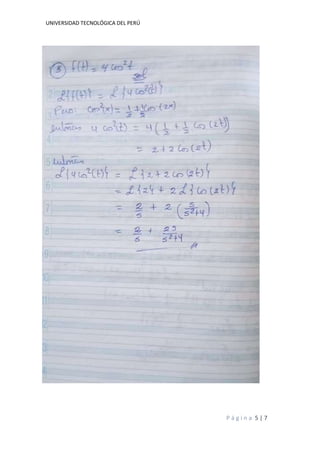 UNIVERSIDAD TECNOLÓGICA DEL PERÚ
③ f(t) = 4 cos²t
sol
ℒ{f(t)} = ℒ{4 cos²(t)}
Pero: cos²(x) = 1/2 + 1/2 cos(2x)
Entonces 4 cos²(t) = 4(1/2 + 1/2 cos(2t))
= 2 + 2 cos(2t)
Entonces
ℒ{4 cos²(t)} = ℒ{2 + 2 cos(2t)}
= ℒ{2} + 2ℒ{cos(2t)}
= 2/s + 2(s/(s²+4))
= 2/s + 2s/(s²+4)
Página 5 | 7